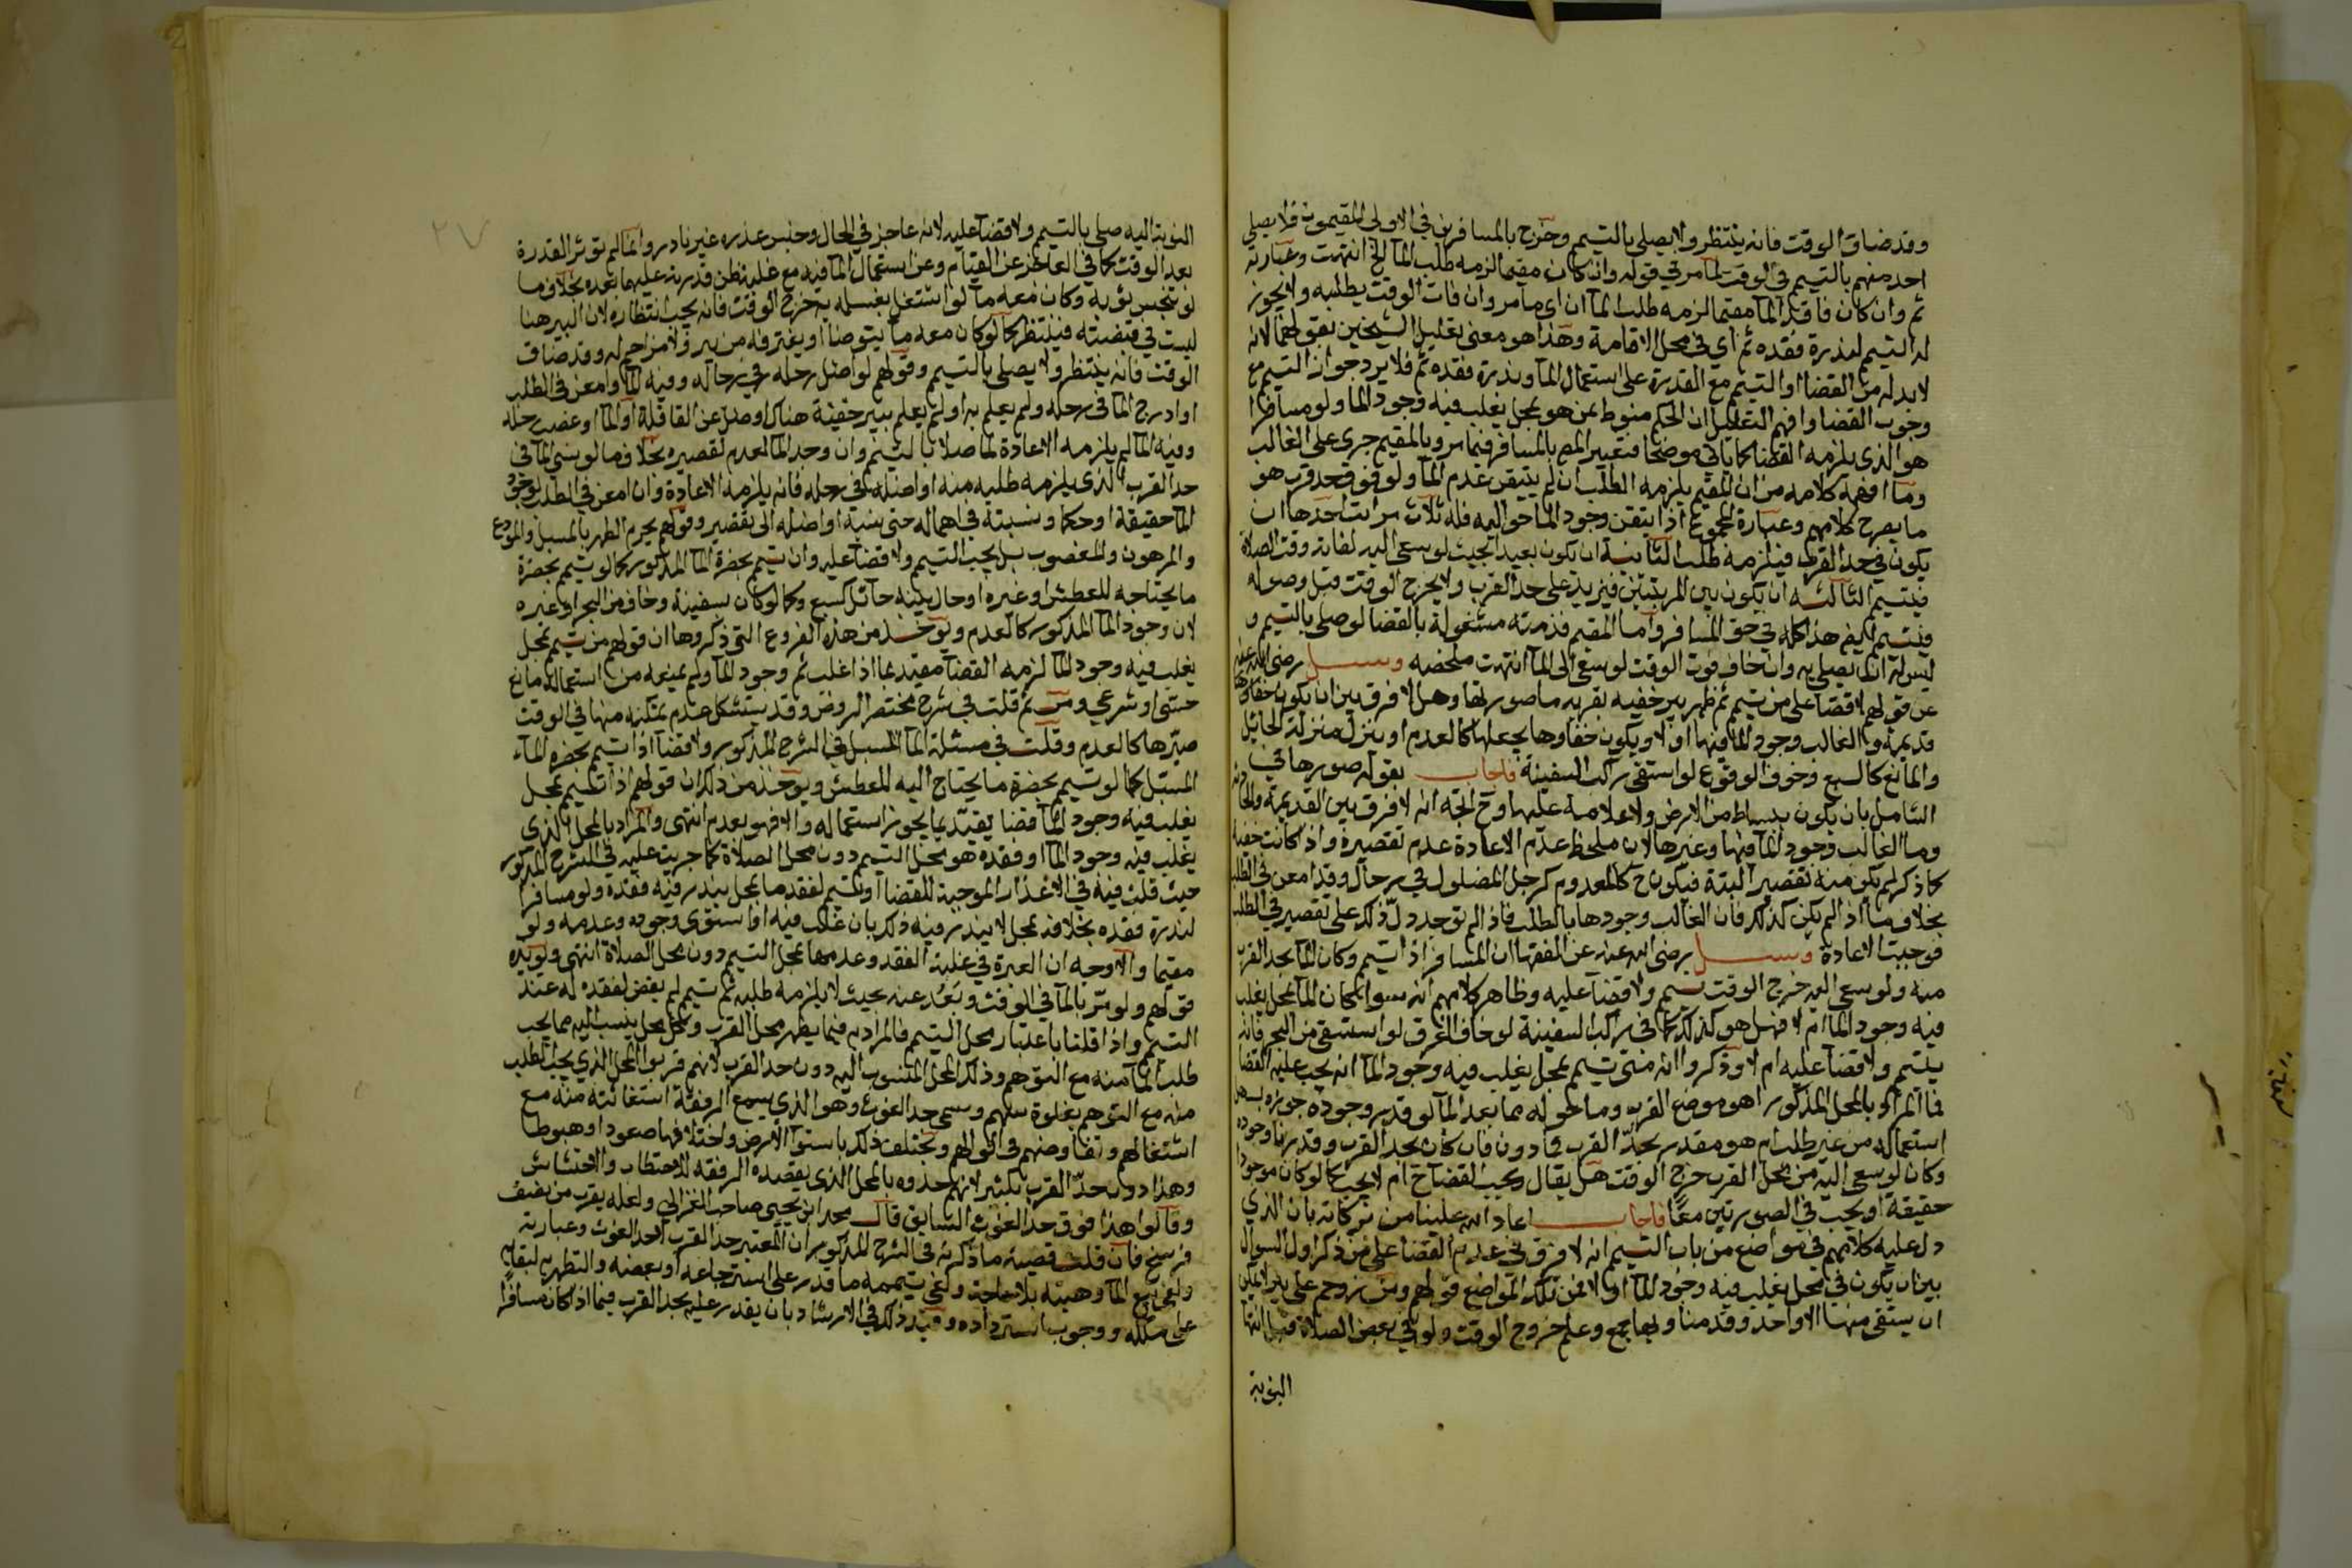 وقد ضاق الوقت فانه ينتظر ولا يصلي بالتيمم وخرج بالمسافرين في الاولى المقيمون فلا يصلي
احد منهم بالتيمم في الوقت لما مر في قوله وان كان مقيما لزمه طلب الما الخ انتهت وعبارته
ثم وان كان فاقد الما مقيما لزمه طلب الما ان اي مامر وان فات الوقت بطلبه ولا يجوز
له التيمم لندرة فقده ثم اي في محل الاقامة وهذا هو معنى تعليل الشيخين بقولهما لانه
لا بد له من القضا او التيمم مع القدرة على استعمال الما وندرة فقده ثم فلا يرد جواز التيمم مع
وجوب القضا وافهم التعليل ان الحكم منوط بمن هو بمحل يغلب فيه وجود الما ولو مسافرا
هو الذي يلزمه القضا كما ياتي موضحا فتعبير المص بالمسافر فيما مر وبالمقيم جرى على الغالب
وما افهمه كلامه من ان المقيم يلزمه الطلب ان لم يتيقن عدم الما ولو فوق حد قرب هو
ما يصرح كلامهم وعبارة المجموع اذا تيقن وجود الما حواليه فله ثلاث مراتب احدها ان
يكون في حد القرب فيلزمه طلب الثانية ان يكون بعيدا بحيث لو سعى اليه لفاته وقت الصلاة
فيتيمم الثالثه ان يكون بين المرتبتين فيزيد على حد القرب ولا يخرج الوقت قبل وصوله
فيتيمم لكن هذا كله في حق المسافر واما المقيم فذمته مشغولة بالقضا لو صلى بالتيمم و
ليس له ان يصلي به وان خاف فوت الوقت لو سعى الى الما انتهت ملخصه وسئل رضي الله عنه
عن قولهم لا قضا على من تيمم ثم ظهر بير خفيه بقربه ما صورتها وهل لا فرق بين ان يكون خفاوها
قديمة والغالب وجود الما فيها او لا ويكون خفاوها يجعلها كالعدم او ينزل منزلة الحائل
والمانع كالسبع وخوف الوقوع لو استقى راكب السفينة فاجاب بقوله صورها في
الشامل بان يكون ببساط من الارض ولا علامة عليها وح المتجه انه لا فرق بين القديمة والحادثة
وما الغالب وجود الما فيها وغيرها لان ملحظ عدم الاعادة عدم تقصيره واذ كانت خفية
كما ذكر لم يكن منه تقصير البتة فيكون ح كالمعدوم كرجل المضلول في رحال وقد امعن في الطلب
بخلاف ما اذا لم يكن كذلك فان الغالب وجودها بالطلب فاذا لم توجد دل ذلك على تقصير في الطلب
فوجبت الاعادة وسئل رضي الله عنه عن الفقهاان المسافر اذا تيمم وكان الما بحد القرب
منه ولو سعى اليه خرج الوقت تيمم ولا قضا عليه وظاهر كلامهم انه سوا كان الما بمحل يغلب
فيه وجود الما ام لا فهل هو كذلك كما في راكب السفينة لو خاف الغرق لو استقى من البحر فانه
يتيمم ولا قضا عليه ام لا وذكروا انه متى تيمم بمحل يغلب فيه وجود الما انه يجب عليه القضا
فما المراد بالمحل المذكور اهو موضع القرب وما حوله مما يعد الما لو قدر وجوده جوزه بسهل
استعماله من غير طلب ام هو مقدر بحد القرب فما دون فان كان بحد القرب وقدرنا وجوده
وكان لو سعى اليه من محل القرب خرج الوقت هل يقال يجب القضا ح ام لا يجب كما لو كان موجودا
حقيقة او يجب في الصورتين معا فاجاب اعاد الله علينا من بركاته بان الذي
دل عليه كلامهم في مواضع من باب التيمم انه لا فرق في عدم القضا على من ذكر اول السوال
بين ان يكون في محل يغلب فيه وجود الما او لا فمن تلك المواضع قولهم ومن زوحم على بير لا يمكن
ان يستقي منها الا واحد وقد منا وبها جمع وعلم خروج الوقت ولو في بعض الصلاة قبل انتها
النوبة
النوبة اليه صلى بالتيمم ولا قضا عليه لانه عاجز في الحال وجنس عذره غير نادر وانما لم تؤثر القدرة
بعد الوقت كما في العاجز عن القيام وعن استعمال الما فيه مع غلبة ظن قدرته عليهما بعده بخلاف ما
لو تنجس ثوبه وكان معه ما لو اشتغل بغسله به خرج الوقت فانه يجب انتظاره لان البير هنا
ليست في قبضته فينتظر كما لو كان معه ما يتوضا او يغترفه من بير ولا مزاحم له وقد ضاق
الوقت فانه ينتظر ولا يصلي بالتيمم وقولهم لو اضل رحله في رحال وفيه الما وامعن في الطلب
او ادرج الما في رحله ولم يعلم به او لم يعلم ببير خفية هناك او ضل عن القافلة او الما او غصب رحله
وفيه الما لم يلزمه الاعادة لما صلا بالتيمم وان وجد الما لعدم تقصيره بخلاف ما لو نسي الما في
حد القرب الذي يلزمه طلبه منه او اضله في رحله فانه يلزمه الاعادة وان امعن في الطلب لوجود
الما حقيقة او حكما ونسبته في اهماله حتى نسيه او اضله الى تقصير وقولهم يحرم الطهر بالمسبل والمودع
والمرهون والمغصوب بل يجب التيمم ولا قضا عليه وان تيمم بحضرة الما المذكور كما لو تيمم بحضرة
ما يحتاجه للعطش او غيره او حال بينه حائل كسبع وكما لو كان بسفينة وخاف من البحر او غيره
لان وجود الما المذكور كالعدم ويوخذ من هذه الفروع التي ذكروها ان قولهم من تيمم بمحل
يغلب فيه وجود الما لزمه القضا مقيد بما اذا غلب ثم وجود الما ولم يمنعه من استعماله مانع
حسي او شرعي ومن ثم قلت في شرح مختصر الروض وقد يستشكل عدم تمكنه منها في الوقت
صيرها كالعدم وقلت في مسئلة الما المسبل في الشرح المذكور ولا قضا اذا تيمم بحضرة الماء
المسبل كما لو تيمم بحضرة ما يحتاج اليه للعطش ويوخذ من ذلك ان قولهم اذا تيمم بمحل
يغلب فيه وجود الما قضا يقيد بما يجوز استعماله والا فهو كعدم انتهى والمراد بالمحل الذي
يغلب فيه وجود الما او فقده هو محل التيمم دون محل الصلاة كما جريت عليه في الشرح المذكور
حيث قلت فيه في الاعذار الموجبة للقضا او تيمم لفقد ما بمحل يندر فيه فقده ولو مسافرا
لندرة فقده بخلافه بمحل لا يندر فيه ذلك بان غلب فيه او استوى وجوده وعدمه ولو
مقيما والاوجه ان العبرة في غلبة الفقد وعدمها بمحل التيمم دون محل الصلاة انتهى ويويده
قولهم ولو مر بالما في الوقت وبعد عنه بحيث لا يلزمه طلبه ثم تيمم لم يقض لفقده له عند
التيمم واذا قلنا باعتبار محل التيمم فالمراد به فيما يظهر محل القرب وكل محل ينسب اليه مما يجب
طلب الما منه مع التوهم وذلك المحل المنسوب اليه دون حد القرب لانهم قربوا المحل الذي يجب الطلب
منه مع التوهم بغلوة سهم وسمي حد الغوث وهو الذي يسمع الرفقة استغاثته منه مع
اشتغالهم وتفاوضهم في اقوالهم ويختلف ذلك باستوا الارض واختلافها صعودا وهبوطا
وهذا دون حد القرب بكثير لانهم حدوه بالمحل الذي يقصده الرفقه للاحتطاب والاحتشاش
وقالوا هذا فوق حد الغوث السابق قال محمد ابن يحيى صاحب الغزالي ولعله يقرب من نصف
فرسخ فان قلت قضية ما ذكرته في الشرح المذكور ان المعتبر حد القرب لا حد الغوث وعبارته
ولغى بيع الما وهبته بلا حاجة ولغى تيممه ما قدر على استرجاعه او بعضه والتطهر به لبقايه
على ملكه ووجوب استرداده وقيد ذلك في الارشاد بان يقدر عليه بحد القرب فيما اذا كان مسافرا
٢٧